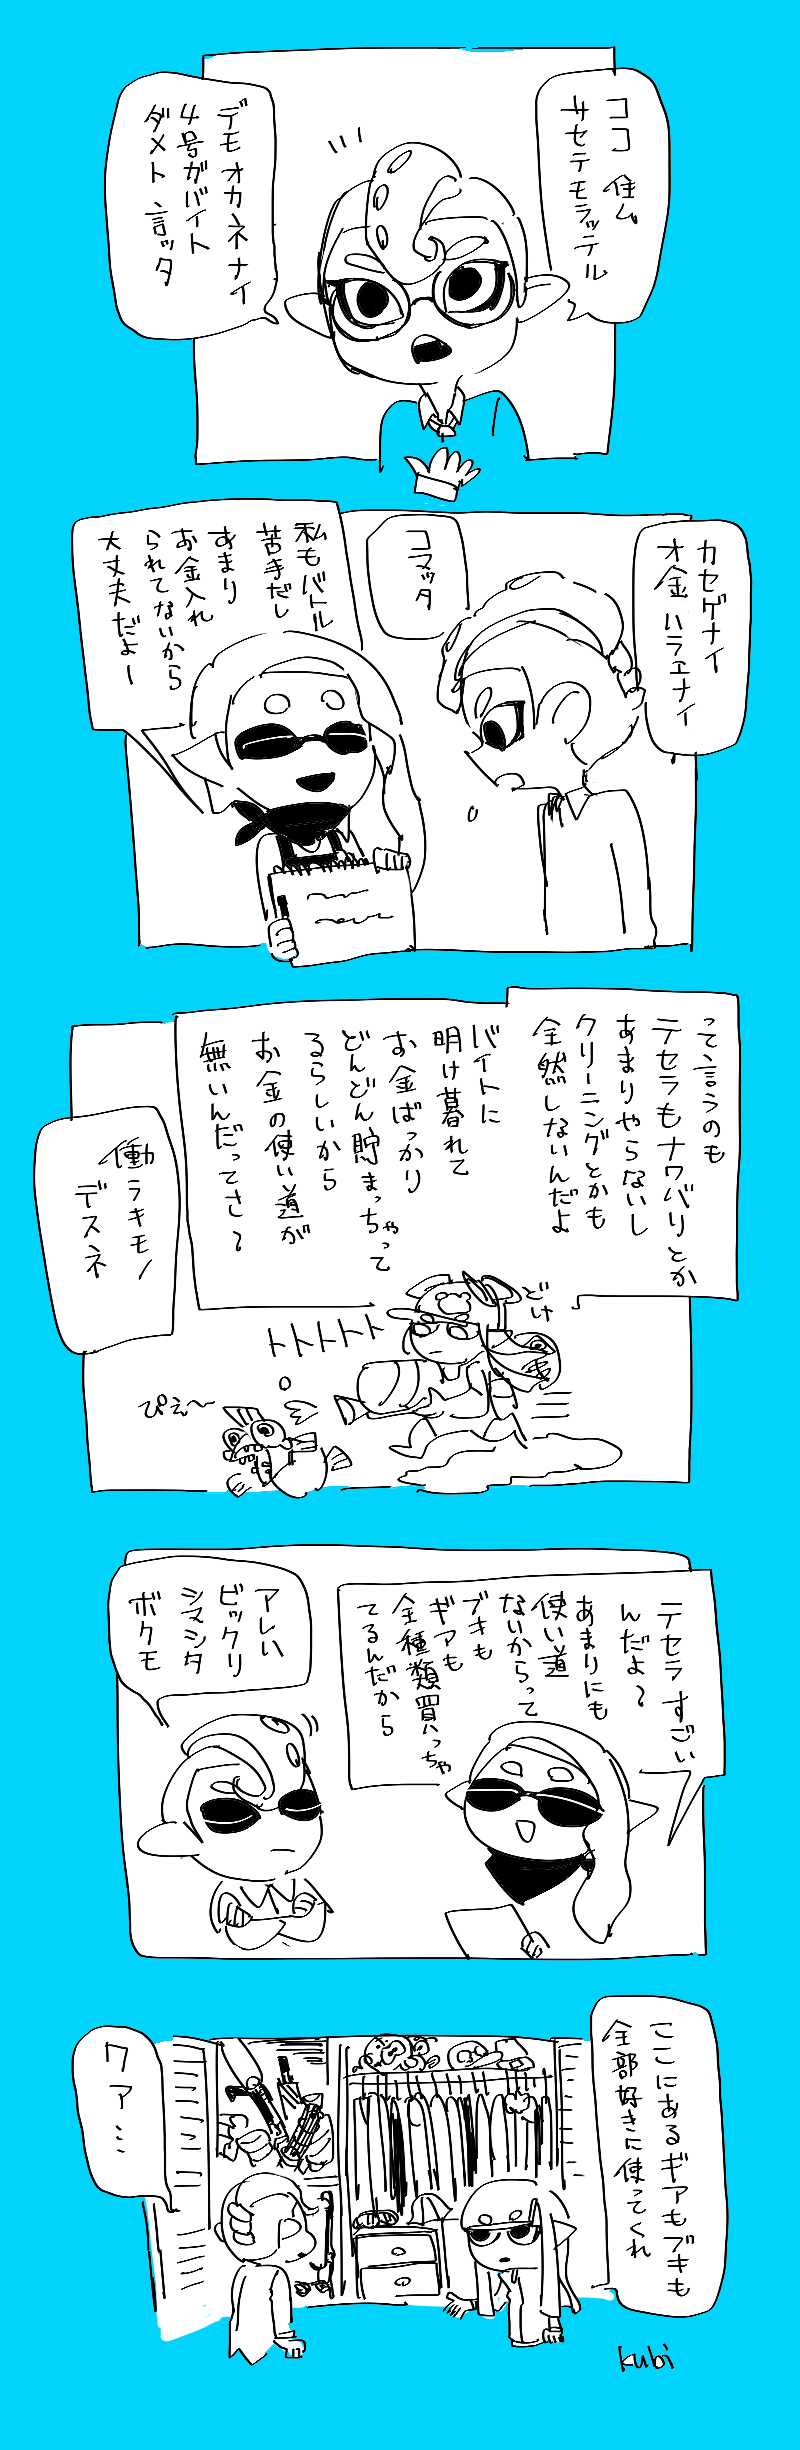 ココ 住ム
サセテモラッテル
デモオカネナイ
4号ガバイト
ダメト言ッタ
カセゲナイ
オ金ハラエナイ
コマッタ
私もバトル
苦手だし
あまり
お金入れ
られてないから
大丈夫だよー
って言うのも
テセラもナワバリとか
あまりやらないし
クリーニングとかも
全然しないんだよ
バイトに
明け暮れて
お金ばっかり
どんどん貯まっちゃって
るらしいから
お金の使い道が
無いんだってさ〜
働ラキモノ
デスネ
どけ
トトトトト
ぴえ〜
テセラすごい
んだよ〜
あまりにも
使い道
ないからって
ブキも
ギアも
全種類買っちゃ
てるんだから
アレハ
ビックリ
シマシタ
ボクモ
ここにあるギアもブキも
全部好きに使ってくれ
ワァ…
kubi